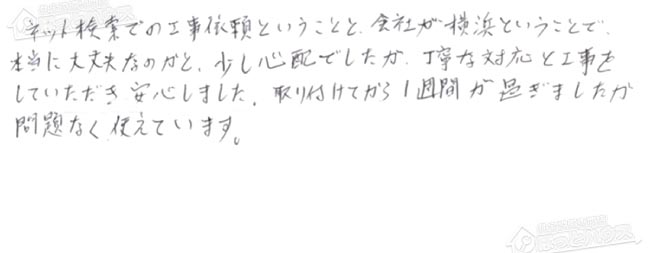 ネット検索での工事依頼ということと、会社が横浜ということで、
本当に大丈夫なのかと、少し心配でしたが、丁寧な対応と工事を
していただき安心しました。取り付けてから1週間が過ぎましたが
問題なく使えています。